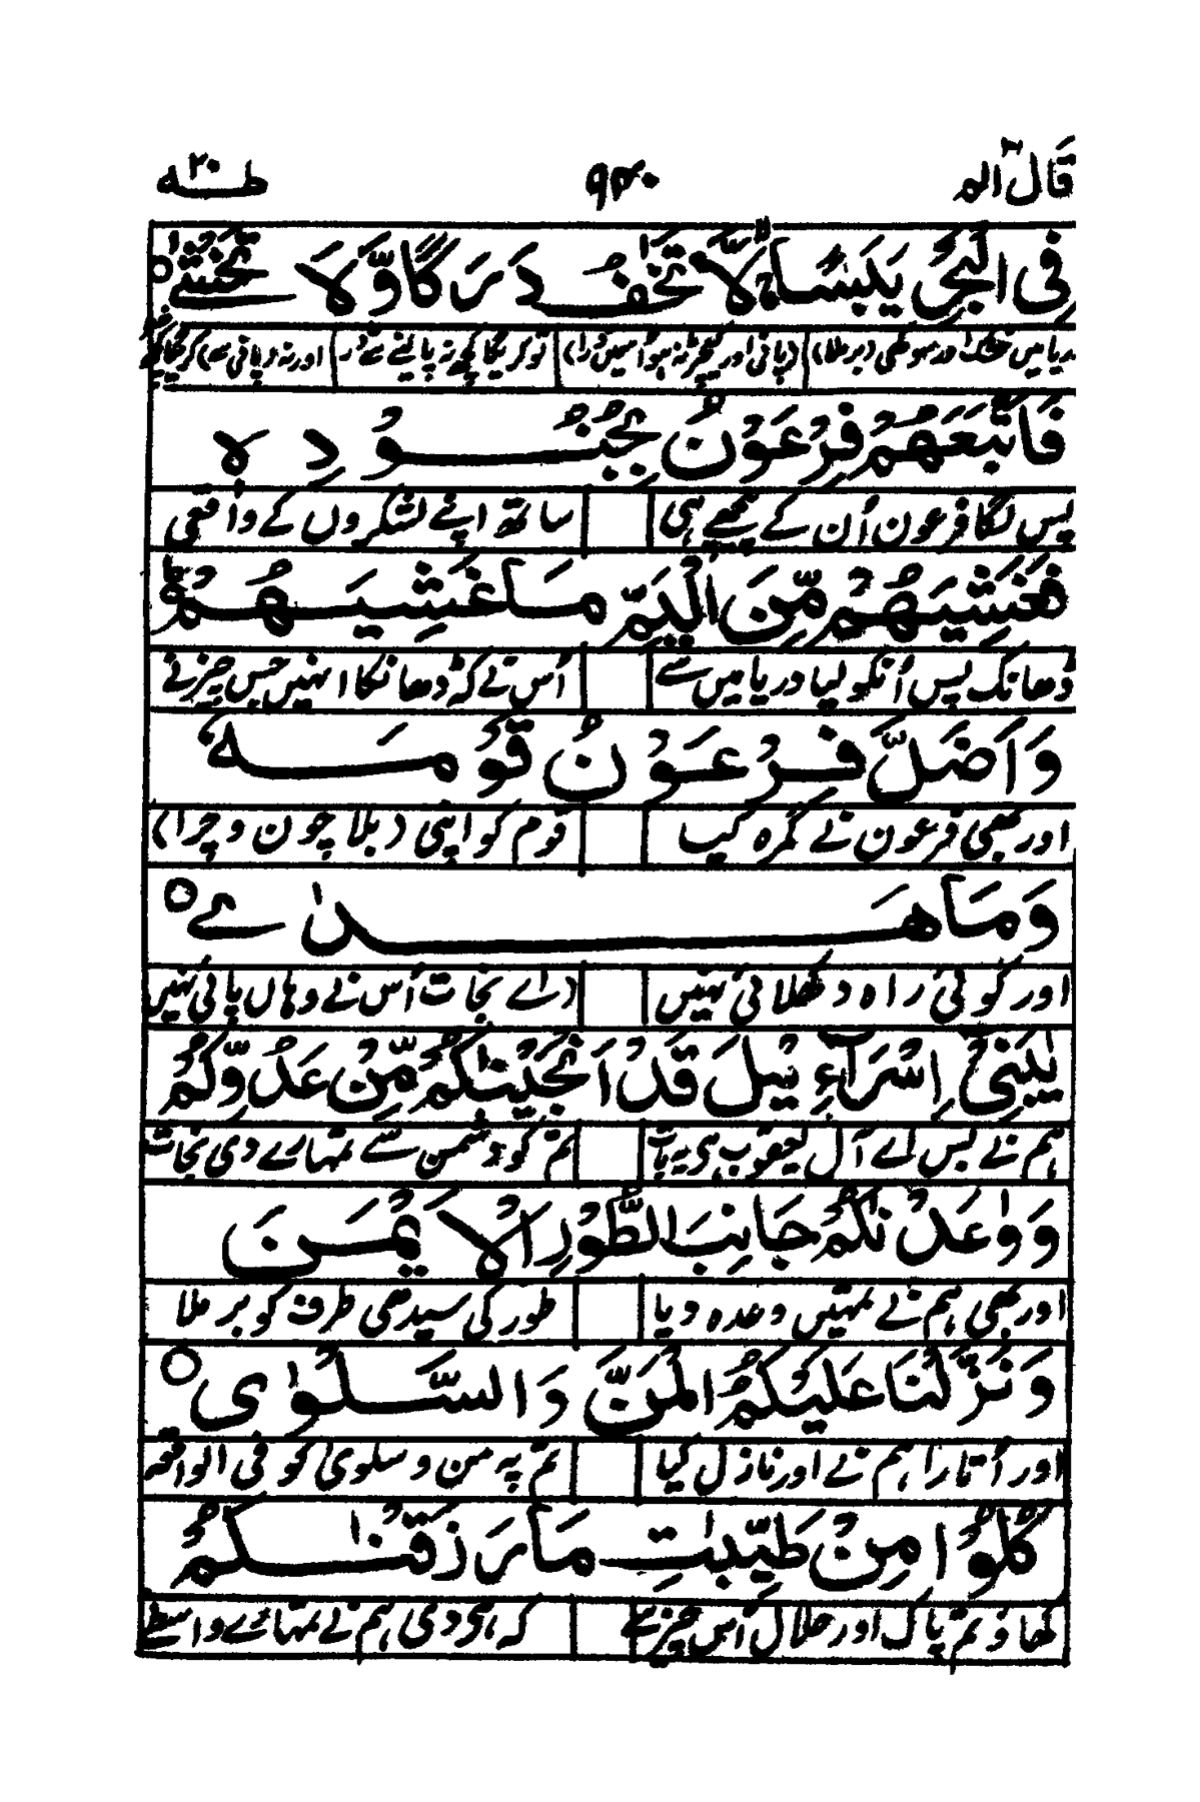 قَالَ الم ٩٤٠ طٰـــهٰ ٢٠
فِی الْبَحْرِ یَبَسًا لَّا تَخٰفُ دَرَكًا وَّلَا تَخْشٰے
دریا میں خشک اور سوکھی (برملا) (پانی اور کیچڑ نہ ہو اسمیں ذرا) تو کر یگا کچھ نہ پا لینے سے ڈر اور نہ (پانی سے)
فَاَتْبَعَهُمْ فِرْعَوْنُ بِجُنُوْدِهٖ
پس لگا فرعون اُن کے پیچھے ہی ساتھ اپنے لشکروں کے واقعی
فَغَشِیَهُمْ مِّنَ الْیَمِّ مَا غَشِیَهُمْ
ڈھانک پس اُنکو لیا دریا میں سے اُس نے کہ ڈھانکا انہیں جس چیز نے
وَاَضَلَّ فِرْعَوْنُ قَوْمَهٗ
اور بھی فرعون نے گمرہ کیا قوم کو اپنی (بلا چون و چرا)
وَمَا هَدٰے
اور کوئی راہ دکھلائی نہیں (راے نجات اُس نے وہاں پائی نہیں
یٰبَنِیْۤ اِسْرَآءِیْلَ قَدْ اَنْجَیْنٰكُمْ مِّنْ عَدُوِّكُمْ
ہم نے بس اے آل یعقوب ہی یہ بات تم کو دشمن سے تمہارے دی نجات
وَوٰعَدْنٰكُمْ جَانِبَ الطُّوْرِ الْاَیْمَنَ
اور بھی ہم نے تمہیں وعدہ دیا طور کی سیدھی طرف کو برملا
وَنَزَّلْنَا عَلَیْكُمُ الْمَنَّ وَالسَّلْوٰی
اور اُتارا ہم نے اور نازل کیا تم پہ من و سلویٰ کو فی الواقعہ
كُلُوْا مِنْ طَیِّبٰتِ مَا رَزَقْنٰكُمْ
کھاؤ تم پاک اور حلال اُس چیز سے کہ ہی دی ہم نے تمہارے واسطے